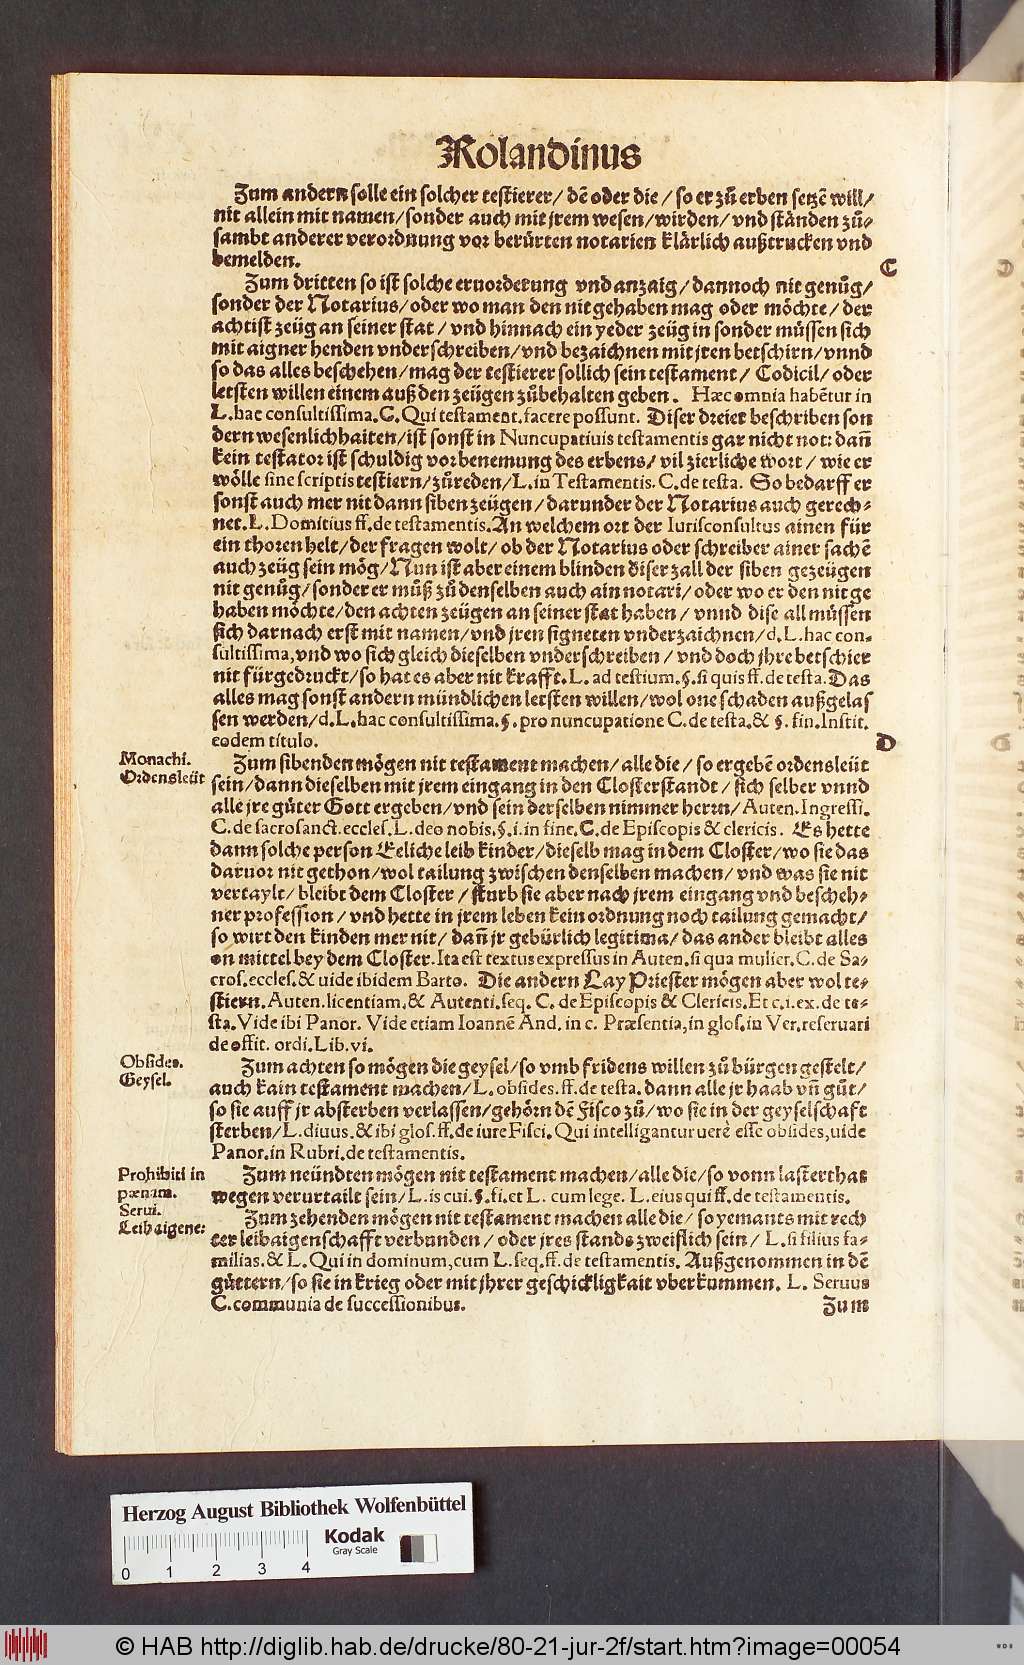 Rolandinus
Zum andern solle ein solcher testierer/ dē oder die / so er zů erben setzē will/
nit allein mit namen/ sonder auch mit jrem wesen/ wirden/ vnd ständen zů⸗
sambt anderer verordnung vor berürten notarien klärlich außtrucken vnd
bemelden.
C
Zum dritten so ist solche eruorderung vnd anzaig/ dannoch nit genůg/
sonder der Notarius/ oder wo man den nit gehaben mag oder möchte/ der
achtist zeüg an seiner stat/ vnd hinnach ein yeder zeüg in sonder müssen sich
mit aigner henden vnderschreiben/ vnd bezaichnen mit jren betschirn/ vnnd
so das alles beschehen/ mag der testierer sollich sein testament/ Codicil/ oder
letsten willen einem auß den zeügen zůbehalten geben. Hæc omnia habētur in
L. hac consultissima. C. Qui testament. facere possunt. Diser dreier beschriben son
dern wesenlichhaiten/ ist sonst in Nuncupatiuis testamentis gar nicht not: dañ
kein testator ist schuldig vorbenemung des erbens/ vil zierliche wort/ wie er
wölle sine scriptis testiern/ zůreden/ L. in Testamentis. C. de testa. So bedarff er
sonst auch mer nit dann siben zeügen/ darunder der Notarius auch gerech⸗
net. L. Domitius ff. de testamentis. An welchem ort der Iurisconsultus ainen für
ein thoren helt/ der fragen wolt/ ob der Notarius oder schreiber ainer sachē
auch zeüg sein mög/ Nun ist aber einem blinden diser zall der siben gezeügen
nit genůg/ sonder er můß zů denselben auch ain notari/ oder wo er den nit ge
haben möchte/ den achten zeügen an seiner stat haben / vnnd dise all müssen
sich darnach erst mit namen/ vnd jren signeten vnderzaichnen/ d. L. hac con⸗
sultissima, vnd wo sich gleich dieselben vnderschreiben / vnd doch jhre betschier
nit fürgedruckt/ so hat es aber nit krafft. L. ad testium. §. si quis ff. de testa. Das
alles mag sonst andern mündlichen letsten willen/ wol one schaden außgelas
sen werden/ d. L. hac consultissima. §. pro nuncupatione C. de testa. & §. fin. Instit.
eodem titulo.
D
Monachi.
Ordensleüt
Zum sibenden mögen nit testament machen/ alle die/ so ergebē ordensleüt
sein/ dann dieselben mit jrem eingang in den Closterstandt/ sich selber vnnd
alle jre gůter Gott ergeben/ vnd sein derselben nimmer herrn/ Auten. Ingressi.
C. de sacrosanct. eccles. L. deo nobis. §. i. in fine. C. de Episcopis & clericis. Es hette
dann solche person Eeliche leib kinder/ dieselb mag in dem Closter/ wo sie das
daruor nit gethon/ wol tailung zwischen denselben machen/ vnd was sie nit
vertaylt/ bleibt dem Closter / sturb sie aber nach jrem eingang vnd bescheh⸗
ner profession / vnd hette in jrem leben kein ordnung noch tailung gemacht/
so wirt den kinden mer nit/ dañ jr gebürlich legitima/ das ander bleibt alles
on mittel bey dem Closter. Ita est textus expressus in Auten. si qua mulier. C. de Sa-
cros. eccles. & uide ibidem Barto. Die andern Lay Priester mögen aber wol te⸗
stiern. Auten. licentiam. & Autenti. seq. C. de Episcopis & Clericis. Et c. i. ex. de te-
sta. Vide ibi Panor. Vide etiam Ioannē And. in c. Præsentia, in glos. in Ver. reseruari
de offit. ordi. Lib. vi.
Obsides.
Geysel.
Zum achten so mögen die geysel/ so vmb fridens willen zů bürgen gestelt/
auch kain testament machen/ L. obsides. ff. de testa. dann alle jr haab vñ gůt/
so sie auff jr absterben verlassen/ gehörn dē Fisco zů/ wo sie in der geyselschaft
sterben/ L. diuus. & ibi glos. ff. de iure Fisci. Qui intelligantur uerè esse obsides, uide
Panor. in Rubri. de testamentis.
Prohibiti in
pœnam.
Zum neündten mögen nit testament machen/ alle die/ so vonn lasterthat
wegen verurtailt sein/ L. is cui. §. fi. et L. cum lege. L. eius qui ff. de testamentis.
Serui.
Leibaigene:
Zum zehenden mögen nit testament machen alle die/ so yemants mit rech
ter leibaigenschafft verbunden/ oder jres stands zweiflich sein/ L. si filius fa-
milias. & L. Qui in dominum, cum L. seq. ff. de testamentis. Außgenommen in dē
güttern/ so sie in krieg oder mit jhrer geschickligkait vberkummen. L. Seruus
C. communia de successionibus.
Zum
Herzog August Bibliothek Wolfenbüttel
Kodak
Gray Scale
0 1 2 3 4
© HAB http://diglib.hab.de/drucke/80-21-jur-2f/start.htm?image=00054